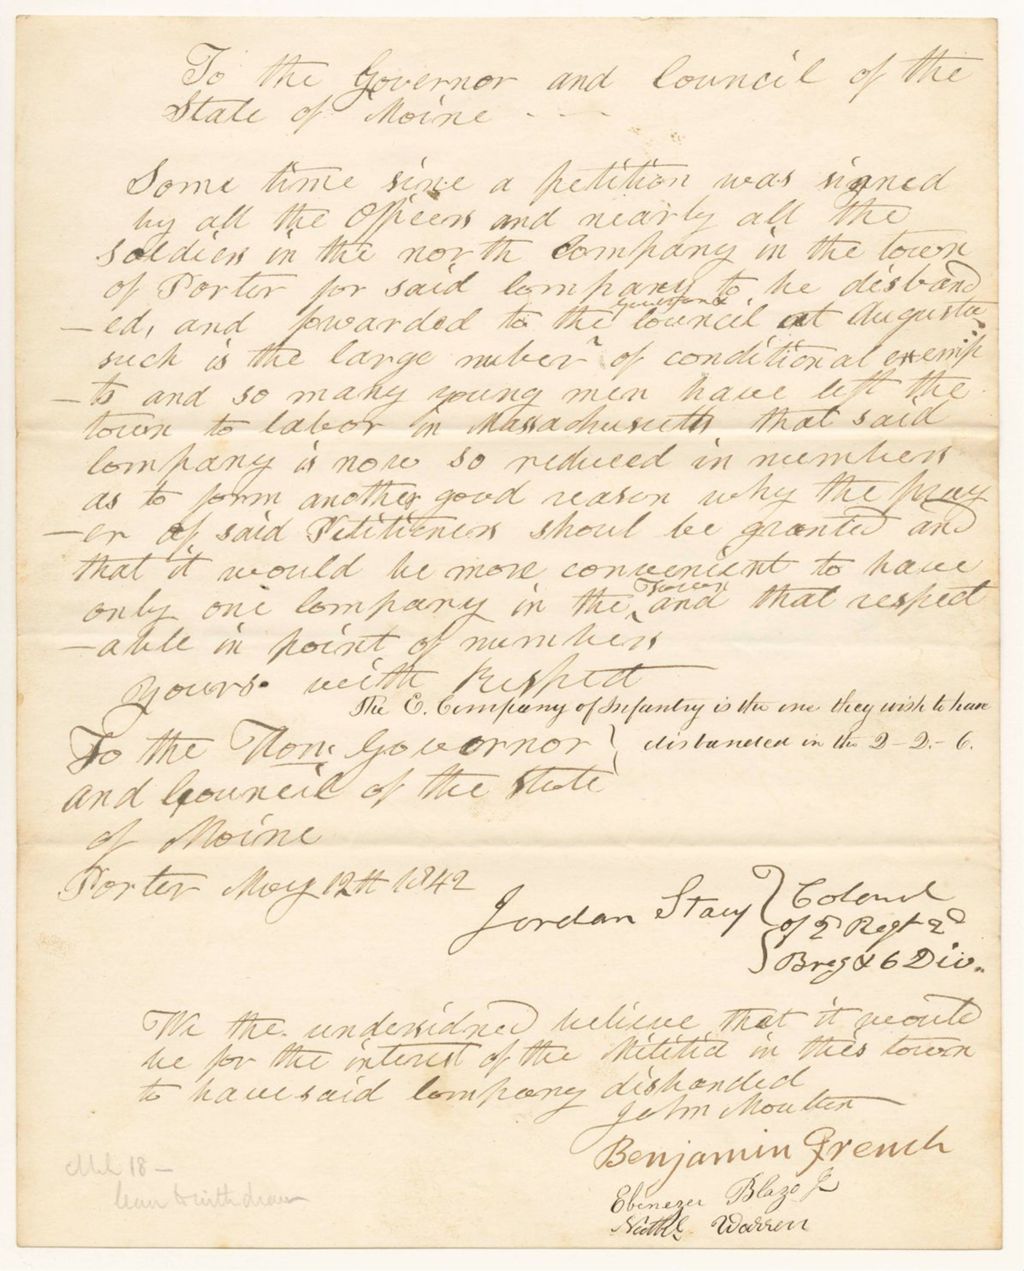 To the Governor and Council of the
State of Maine - - -
Some time sine a petition was signed
by all the Officers and nearly all the
soldiers in the north Company in the town
of Porter for said Company to be disband
-ed, and forwarded to the Governor & Council at Augusta
such is the large nuber of conditional exemp
-ts and so many young men have left the
town to labor in Massachusetts that said
Company is now so reduced in numbers
as to form another good reason why the pray
-er of said Petitioners shoul be granted and
that it would be more convenient to have
only one Company in the Town and that respect
-able in point of numbers
yours with Respect
The E. Company of Infantry is the one they wish to have
disbanded in the 2-2-6.
To the Hon. Governor
and Council of the State
of Maine
Porter May 12th 1842
Jordan Stacy } Colonel
of 2d Regt 2d
Breg & 6 Div.
We the undersidned believe that it would
be for the interest of the Militia in this town
to have said Company disbanded
John Moulton
Benjamin French
Ebenezer Blazo Jr
Nathl Warren
leave to withdraw